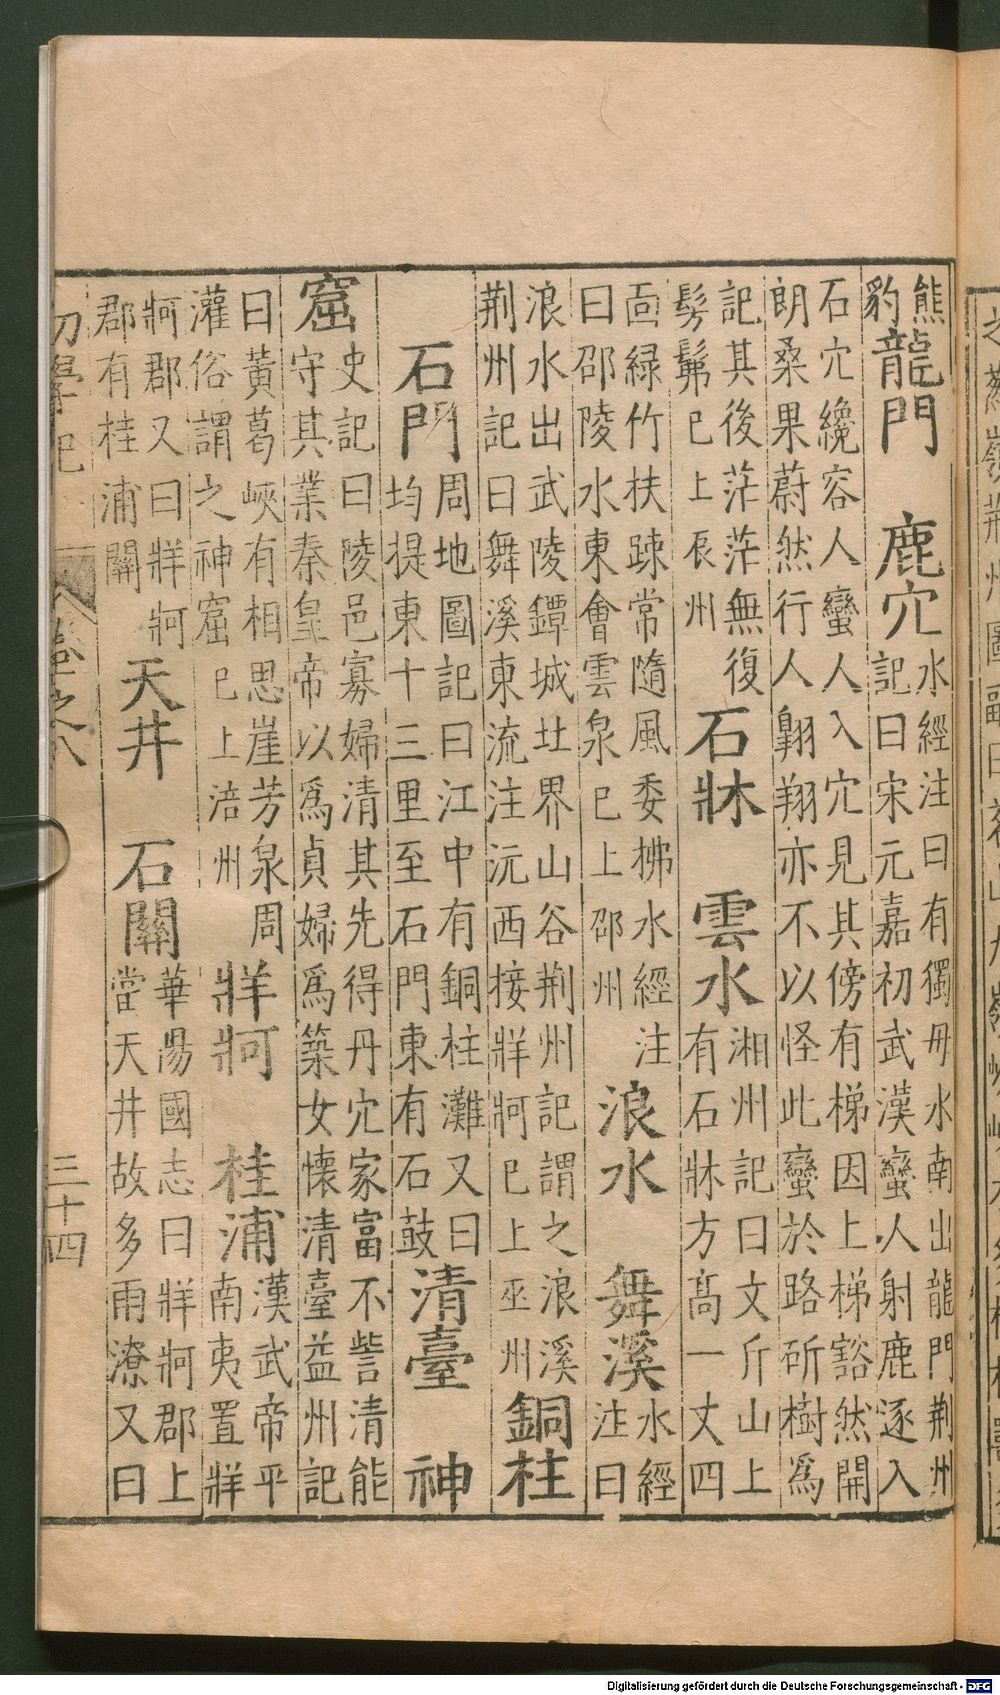 熊豹龍門　鹿穴水經注曰有獨毋水南出龍門荆州記曰宋元嘉初武漢蠻人射鹿逐入
石穴纔容人蠻人入穴見其傍有梯因上梯豁然開朗桑果蔚然行人翺翔亦不以怪此蠻於路斫樹爲
記其後茫茫無復髣髴巳上辰州石牀　雲水湘州記曰文斤山上有石牀方高一丈四
靣緑竹扶踈常隨風委拂水經注曰邵陵水東會雲泉巳上邵州浪水　舞溪水經注曰
浪水出武陵鐔城北界山谷荆州記謂之浪溪荆州記曰舞溪東流注沅西接牂牁巳上巫州銅柱
石門周地圖記曰江中有銅柱灘又曰均提東十三里至石門東有石鼓清臺　神
窟史記曰陵邑寡婦清其先得丹穴家富不訾清能守其業秦皇帝以爲貞婦爲築女懷清臺益州記
曰黃葛峽有相思崖芳泉周灌俗謂之神窟巳上涪州牂牁　桂浦漢武帝平南夷置牂
牁郡又曰牂牁郡有桂浦關天井　石關華陽國志曰牂牁郡上當天井故多雨潦又曰
初學記　卷之八　三十四
Digitalisierung gefördert durch die Deutsche Forschungsgemeinschaft - DFG